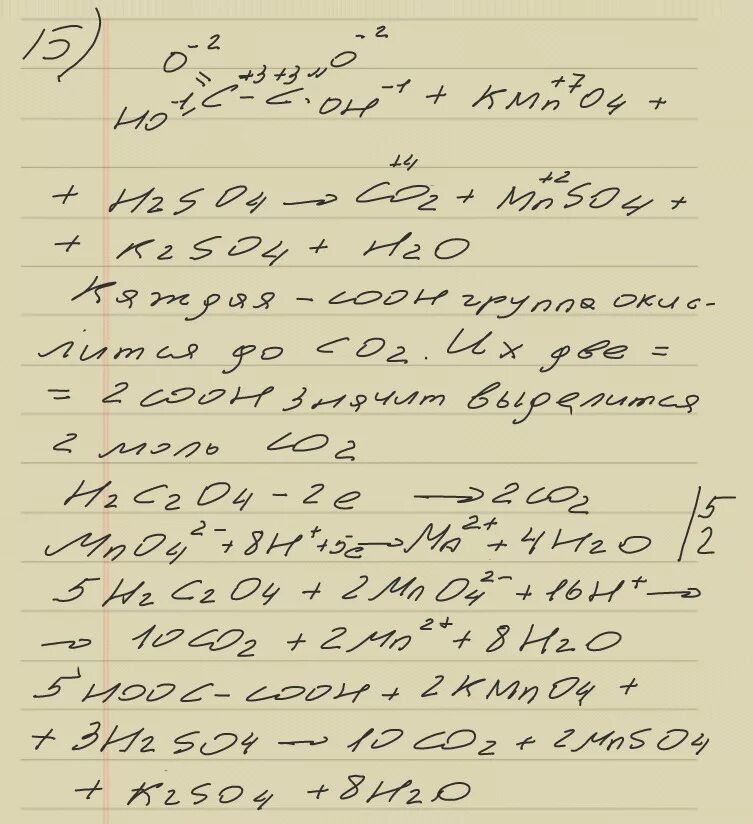 15)
O⁻² O⁻²
HO⁻¹ C⁺³ - C⁺³ OH⁻¹ + KMn⁺⁷O4 +
+ H2SO4 → C⁺⁴O2 + Mn⁺²SO4 +
+ K2SO4 + H2O
Каждая -COOH группа окис-
лится до CO2. Их две =
= 2COOH значит выделится
2 моль CO2
H2C2O4 - 2e → 2CO2 | 5
MnO4²⁻ + 8H⁺ + 5e⁻ → Mn²⁺ + 4H2O | 2
5H2C2O4 + 2MnO4²⁻ + 16H⁺ →
→ 10CO2 + 2Mn²⁺ + 8H2O
5HOOC-COOH + 2KMnO4 +
+ 3H2SO4 → 10CO2 + 2MnSO4
+ K2SO4 + 8H2O